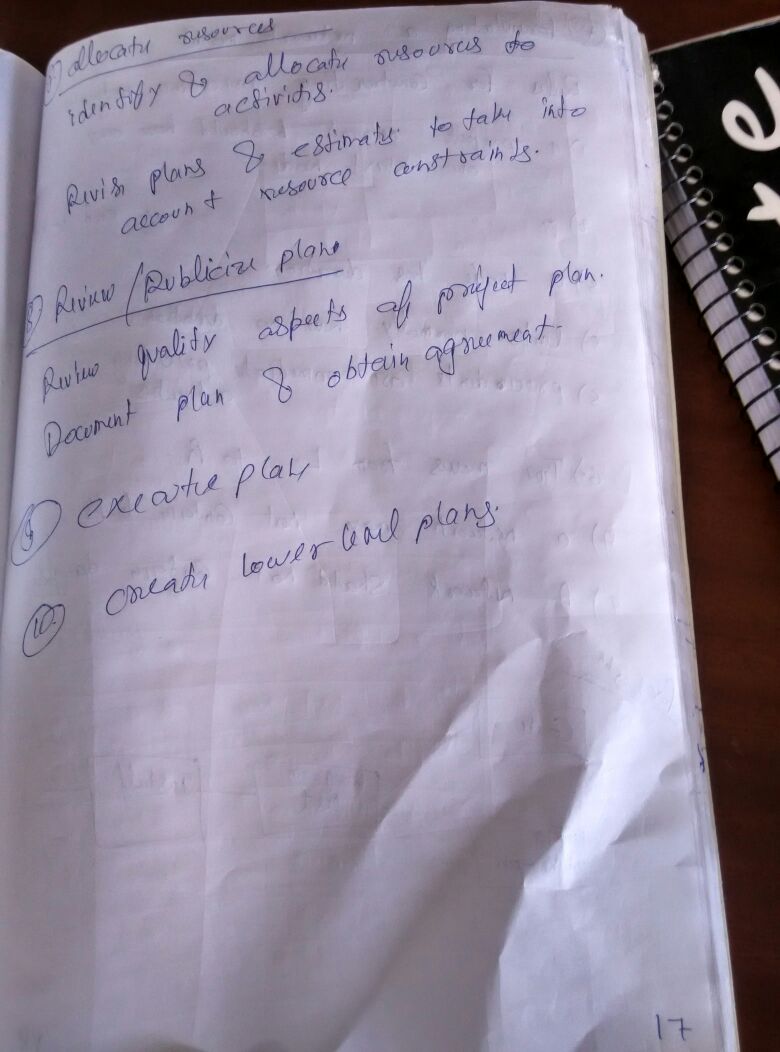 7) allocate resources
identify & allocate resources to
activities.
Revise plans & estimates to take into
account resource constraints.
8) Review / Publicize plan
Review quality aspects of project plan.
Document plan & obtain agreement.
9) execute plan
10. create lower level plans.
17